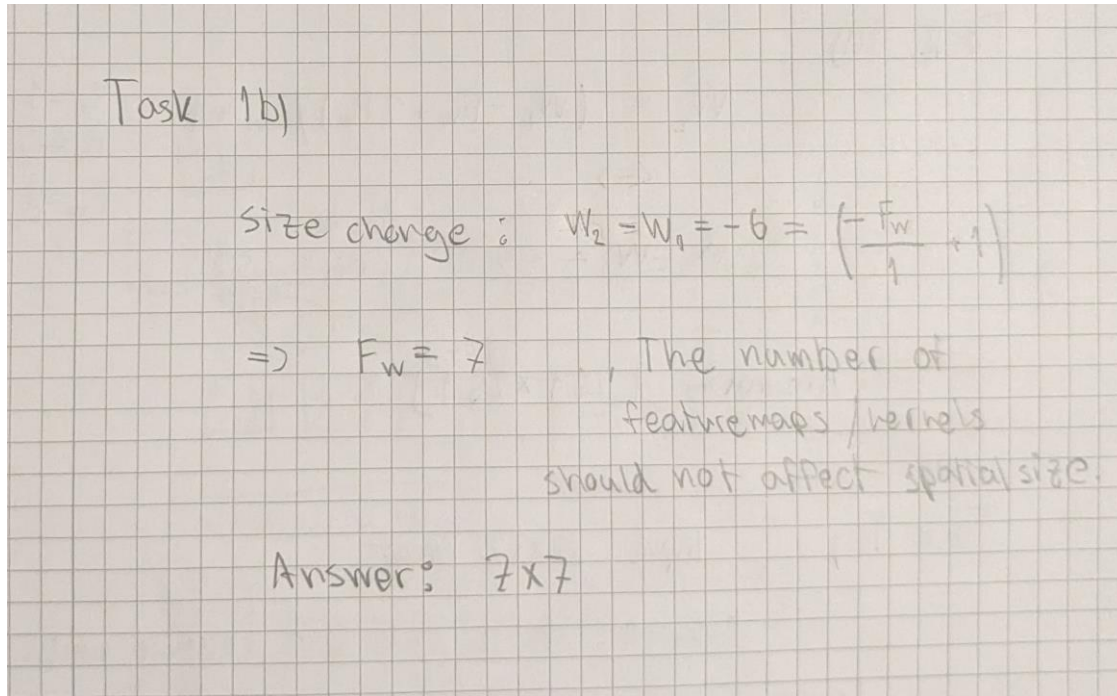 Task 1b)
Size change : W₂ - W₁ = -6 = (-F_W/1 + 1)
=> F_W = 7 , The number of
featuremaps / kernels
should not affect spatial size.
Answer: 7x7